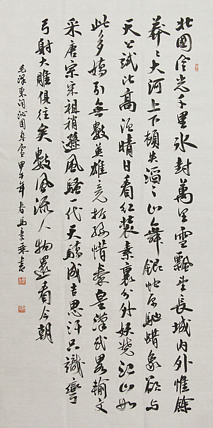 北國風光千里冰封萬里雪飄望長城內外惟餘
莽々大河上下頓失滔々山舞銀蛇原馳蜡象欲與
天公試比高須晴日看紅裝素裹分外妖嬈江山如
此多嬌引無數英雄競折腰惜秦皇漢武略輸文
采唐宗宋祖稍遜風騷一代天驕成吉思汗只識彎
弓射大雕俱往矣數風流人物還看今朝
毛澤東詞沁園春雪甲午年春書